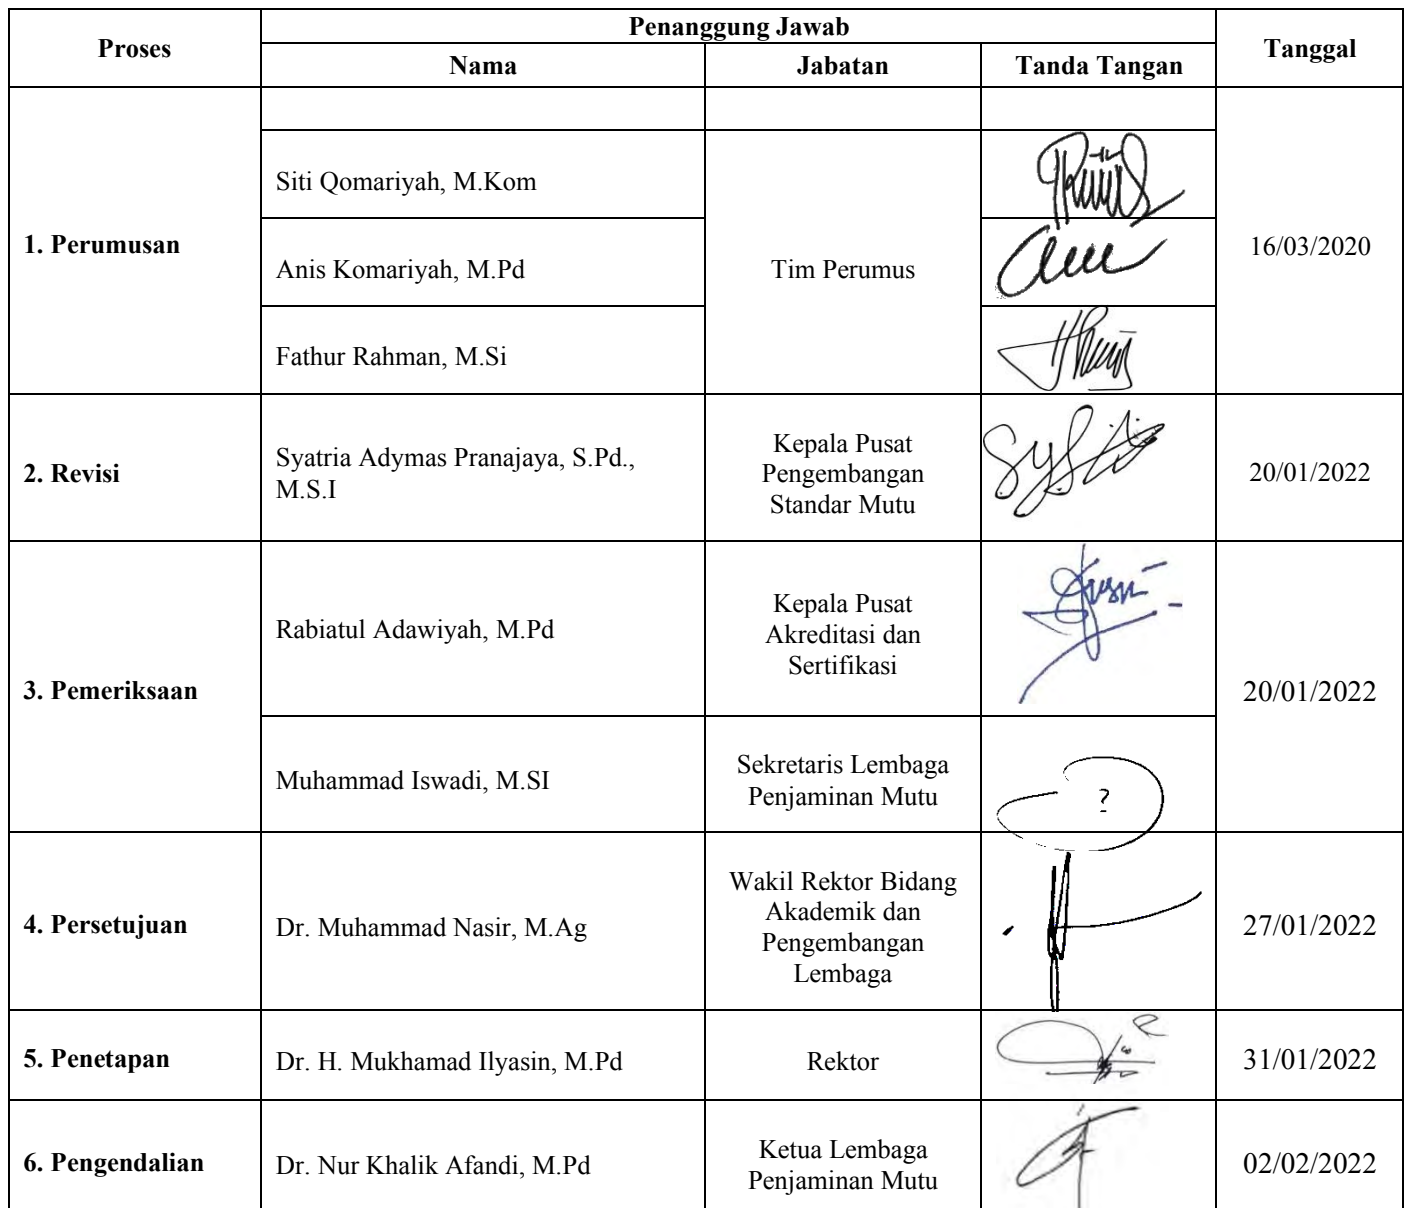 Proses
Penanggung Jawab
Tanggal
Nama
Jabatan
Tanda Tangan
1. Perumusan
Siti Qomariyah, M.Kom
Anis Komariyah, M.Pd
Tim Perumus
16/03/2020
Fathur Rahman, M.Si
2. Revisi
Syatria Adymas Pranajaya, S.Pd.,
M.S.I
Kepala Pusat
Pengembangan
Standar Mutu
20/01/2022
3. Pemeriksaan
Rabiatul Adawiyah, M.Pd
Kepala Pusat
Akreditasi dan
Sertifikasi
20/01/2022
Muhammad Iswadi, M.SI
Sekretaris Lembaga
Penjaminan Mutu
?
4. Persetujuan
Dr. Muhammad Nasir, M.Ag
Wakil Rektor Bidang
Akademik dan
Pengembangan
Lembaga
27/01/2022
5. Penetapan
Dr. H. Mukhamad Ilyasin, M.Pd
Rektor
31/01/2022
6. Pengendalian
Dr. Nur Khalik Afandi, M.Pd
Ketua Lembaga
Penjaminan Mutu
02/02/2022